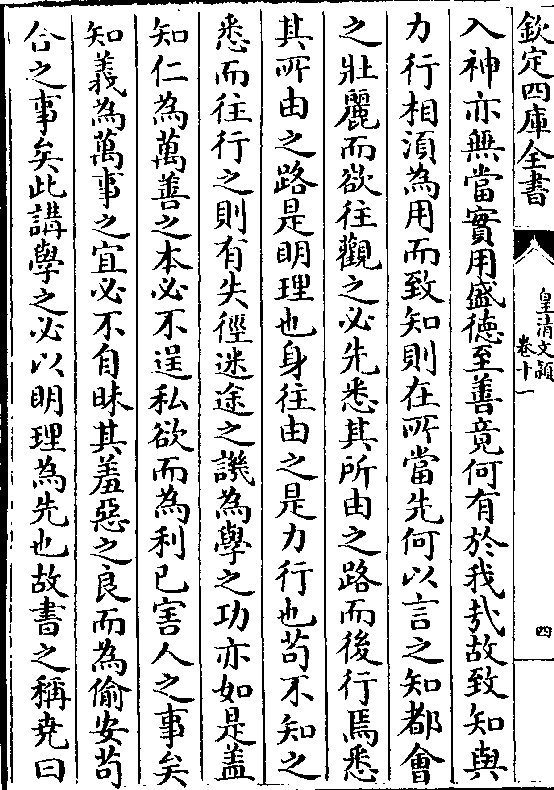 欽定四庫全書
皇清文穎
卷十一
四
入神亦無當實用盛徳至善竟何有於我㢤故致知與
力行相湏為用而致知則在所當先何以言之知都會
之壯麗而欲往觀之必先悉其所由之路而後行焉悉
其所由之路是明理也身往由之是力行也茍不知之
悉而往行之則有失徑迷途之譏為學之功亦如是盖
知仁為萬善之本必不逞私欲而為利已害人之事矣
知義為萬事之宜必不自昧其羞惡之良而為偷安茍
合之事矣此講學之必以明理為先也故書之稱堯曰